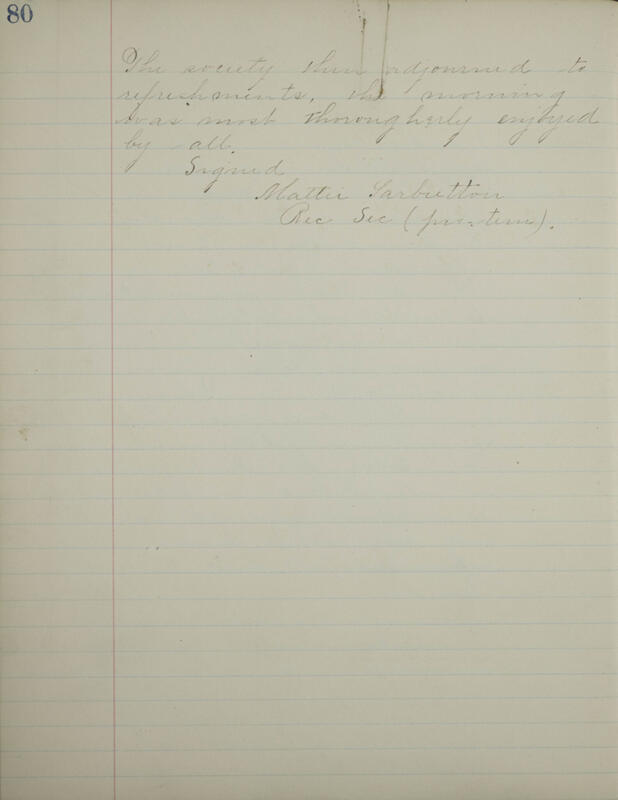 80
The society then adjourned to
refreshments, the morning
was most thorougherly enjoyed
by all.
Signed
Mattie Sarbutton
Rec Sec (pro-tem).